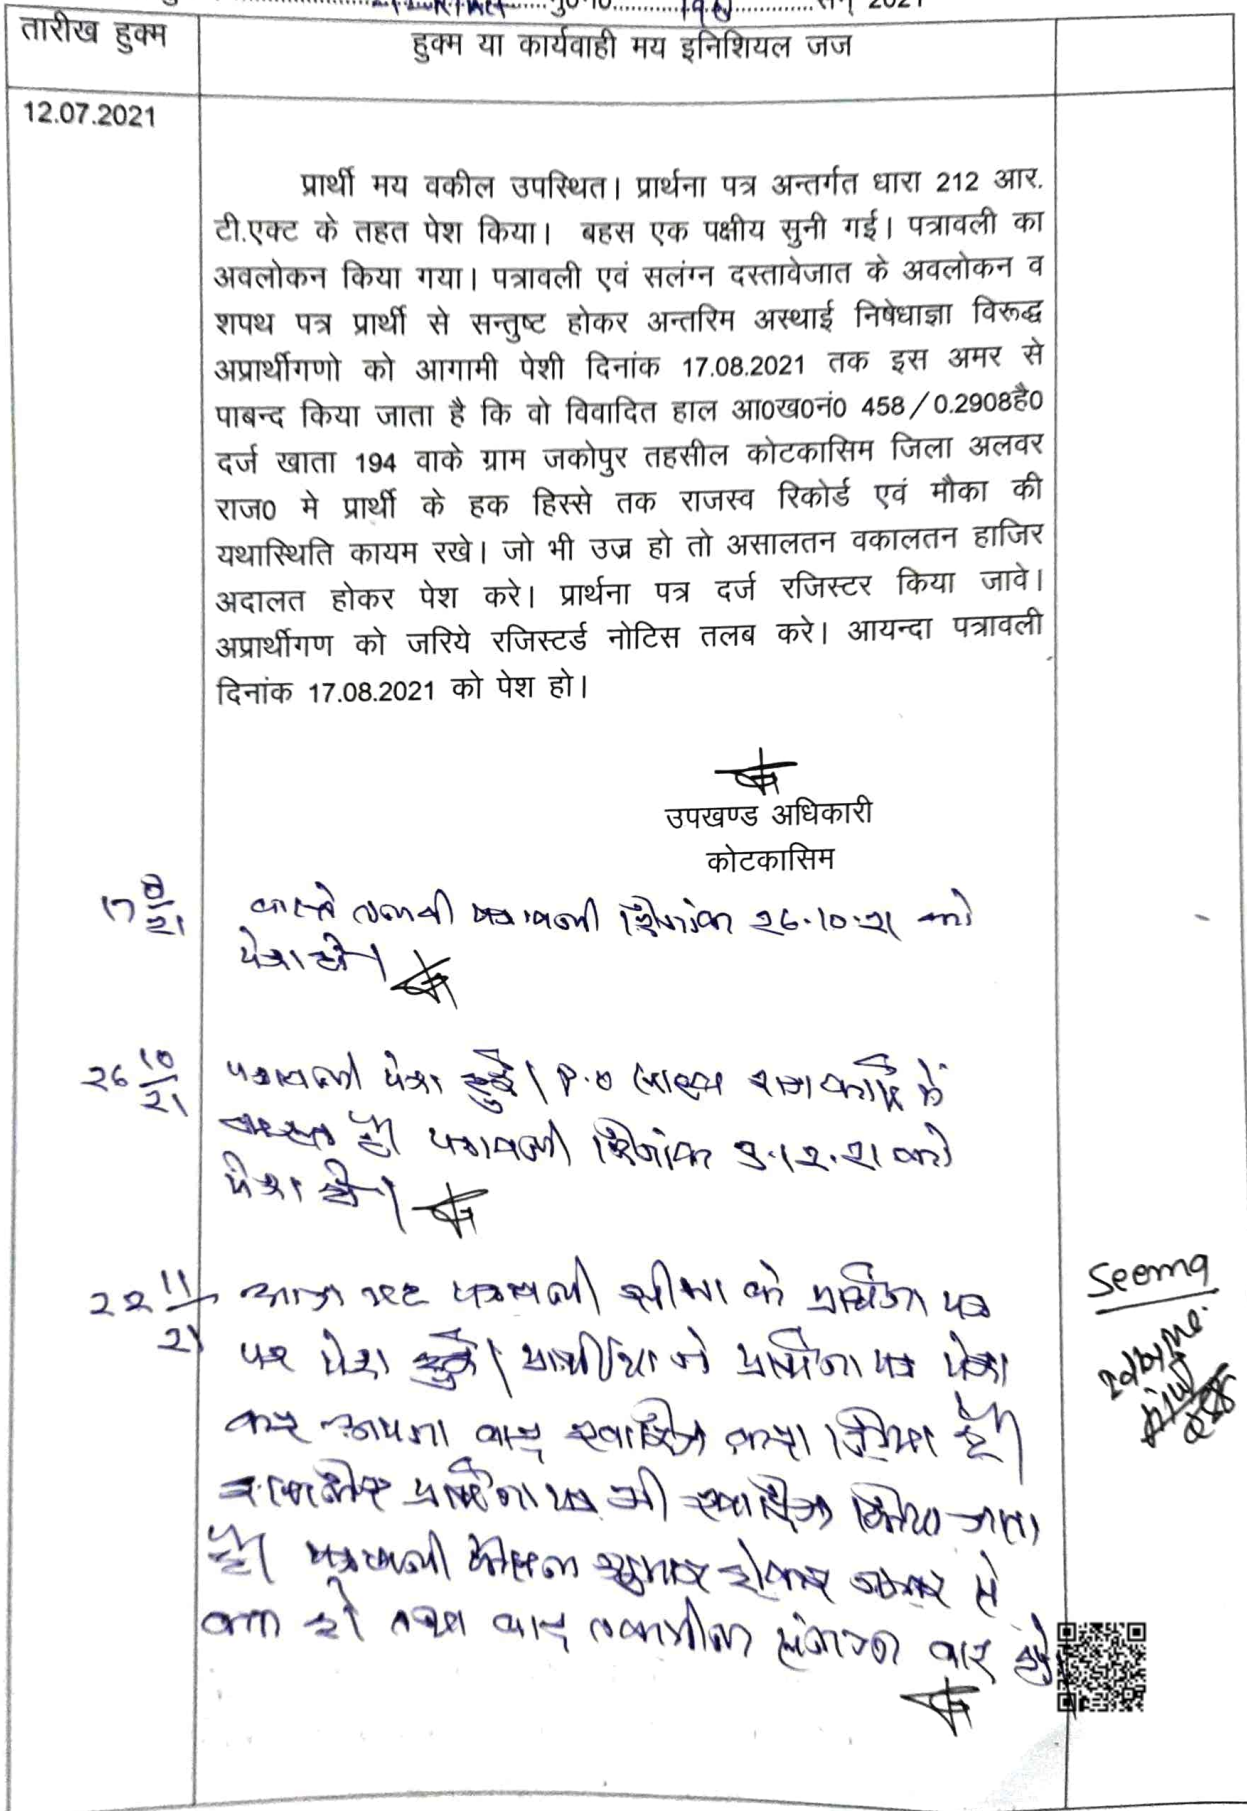 सन् 2021
तारीख हुक्म
हुक्म या कार्यवाही मय इनिशियल जज
12.07.2021
प्रार्थी मय वकील उपस्थित। प्रार्थना पत्र अन्तर्गत धारा 212 आर.
टी.एक्ट के तहत पेश किया। बहस एक पक्षीय सुनी गई। पत्रावली का
अवलोकन किया गया। पत्रावली एवं सलंग्न दस्तावेजात के अवलोकन व
शपथ पत्र प्रार्थी से सन्तुष्ट होकर अन्तरिम अस्थाई निषेधाज्ञा विरूद्ध
अप्रार्थीगणो को आगामी पेशी दिनांक 17.08.2021 तक इस अमर से
पाबन्द किया जाता है कि वो विवादित हाल आ0ख0नं0 458/0.2908है0
दर्ज खाता 194 वाके ग्राम जकोपुर तहसील कोटकासिम जिला अलवर
राज0 मे प्रार्थी के हक हिस्से तक राजस्व रिकोर्ड एवं मौका की
यथास्थिति कायम रखे। जो भी उज्र हो तो असालतन वकालतन हाजिर
अदालत होकर पेश करे। प्रार्थना पत्र दर्ज रजिस्टर किया जावे।
अप्रार्थीगण को जरिये रजिस्टर्ड नोटिस तलब करे। आयन्दा पत्रावली
दिनांक 17.08.2021 को पेश हो।
उपखण्ड अधिकारी
कोटकासिम
17 8/21 वास्ते तलबी पत्रावली दिनांक 26.10.21 को
पेश हो।
26 10/21 पत्रावली पेश हुई। P.O साहब राजकार्य में
व्यस्त है। पत्रावली दिनांक 3.12.21 को
पेश हो।
22 11/21 आज यह पत्रावली सीमा के प्रार्थना पत्र
पर पेश हुई। प्रार्थीया ने प्रार्थना पत्र पेश
कर अपना वाद खारिज करा लिया है।
इसलिए प्रार्थना पत्र भी खारिज किया जाता
है। पत्रावली फैसल शुमार होकर नम्बर से
कम हो तथा बाद तकमील संलग्न वाद हो
Seema